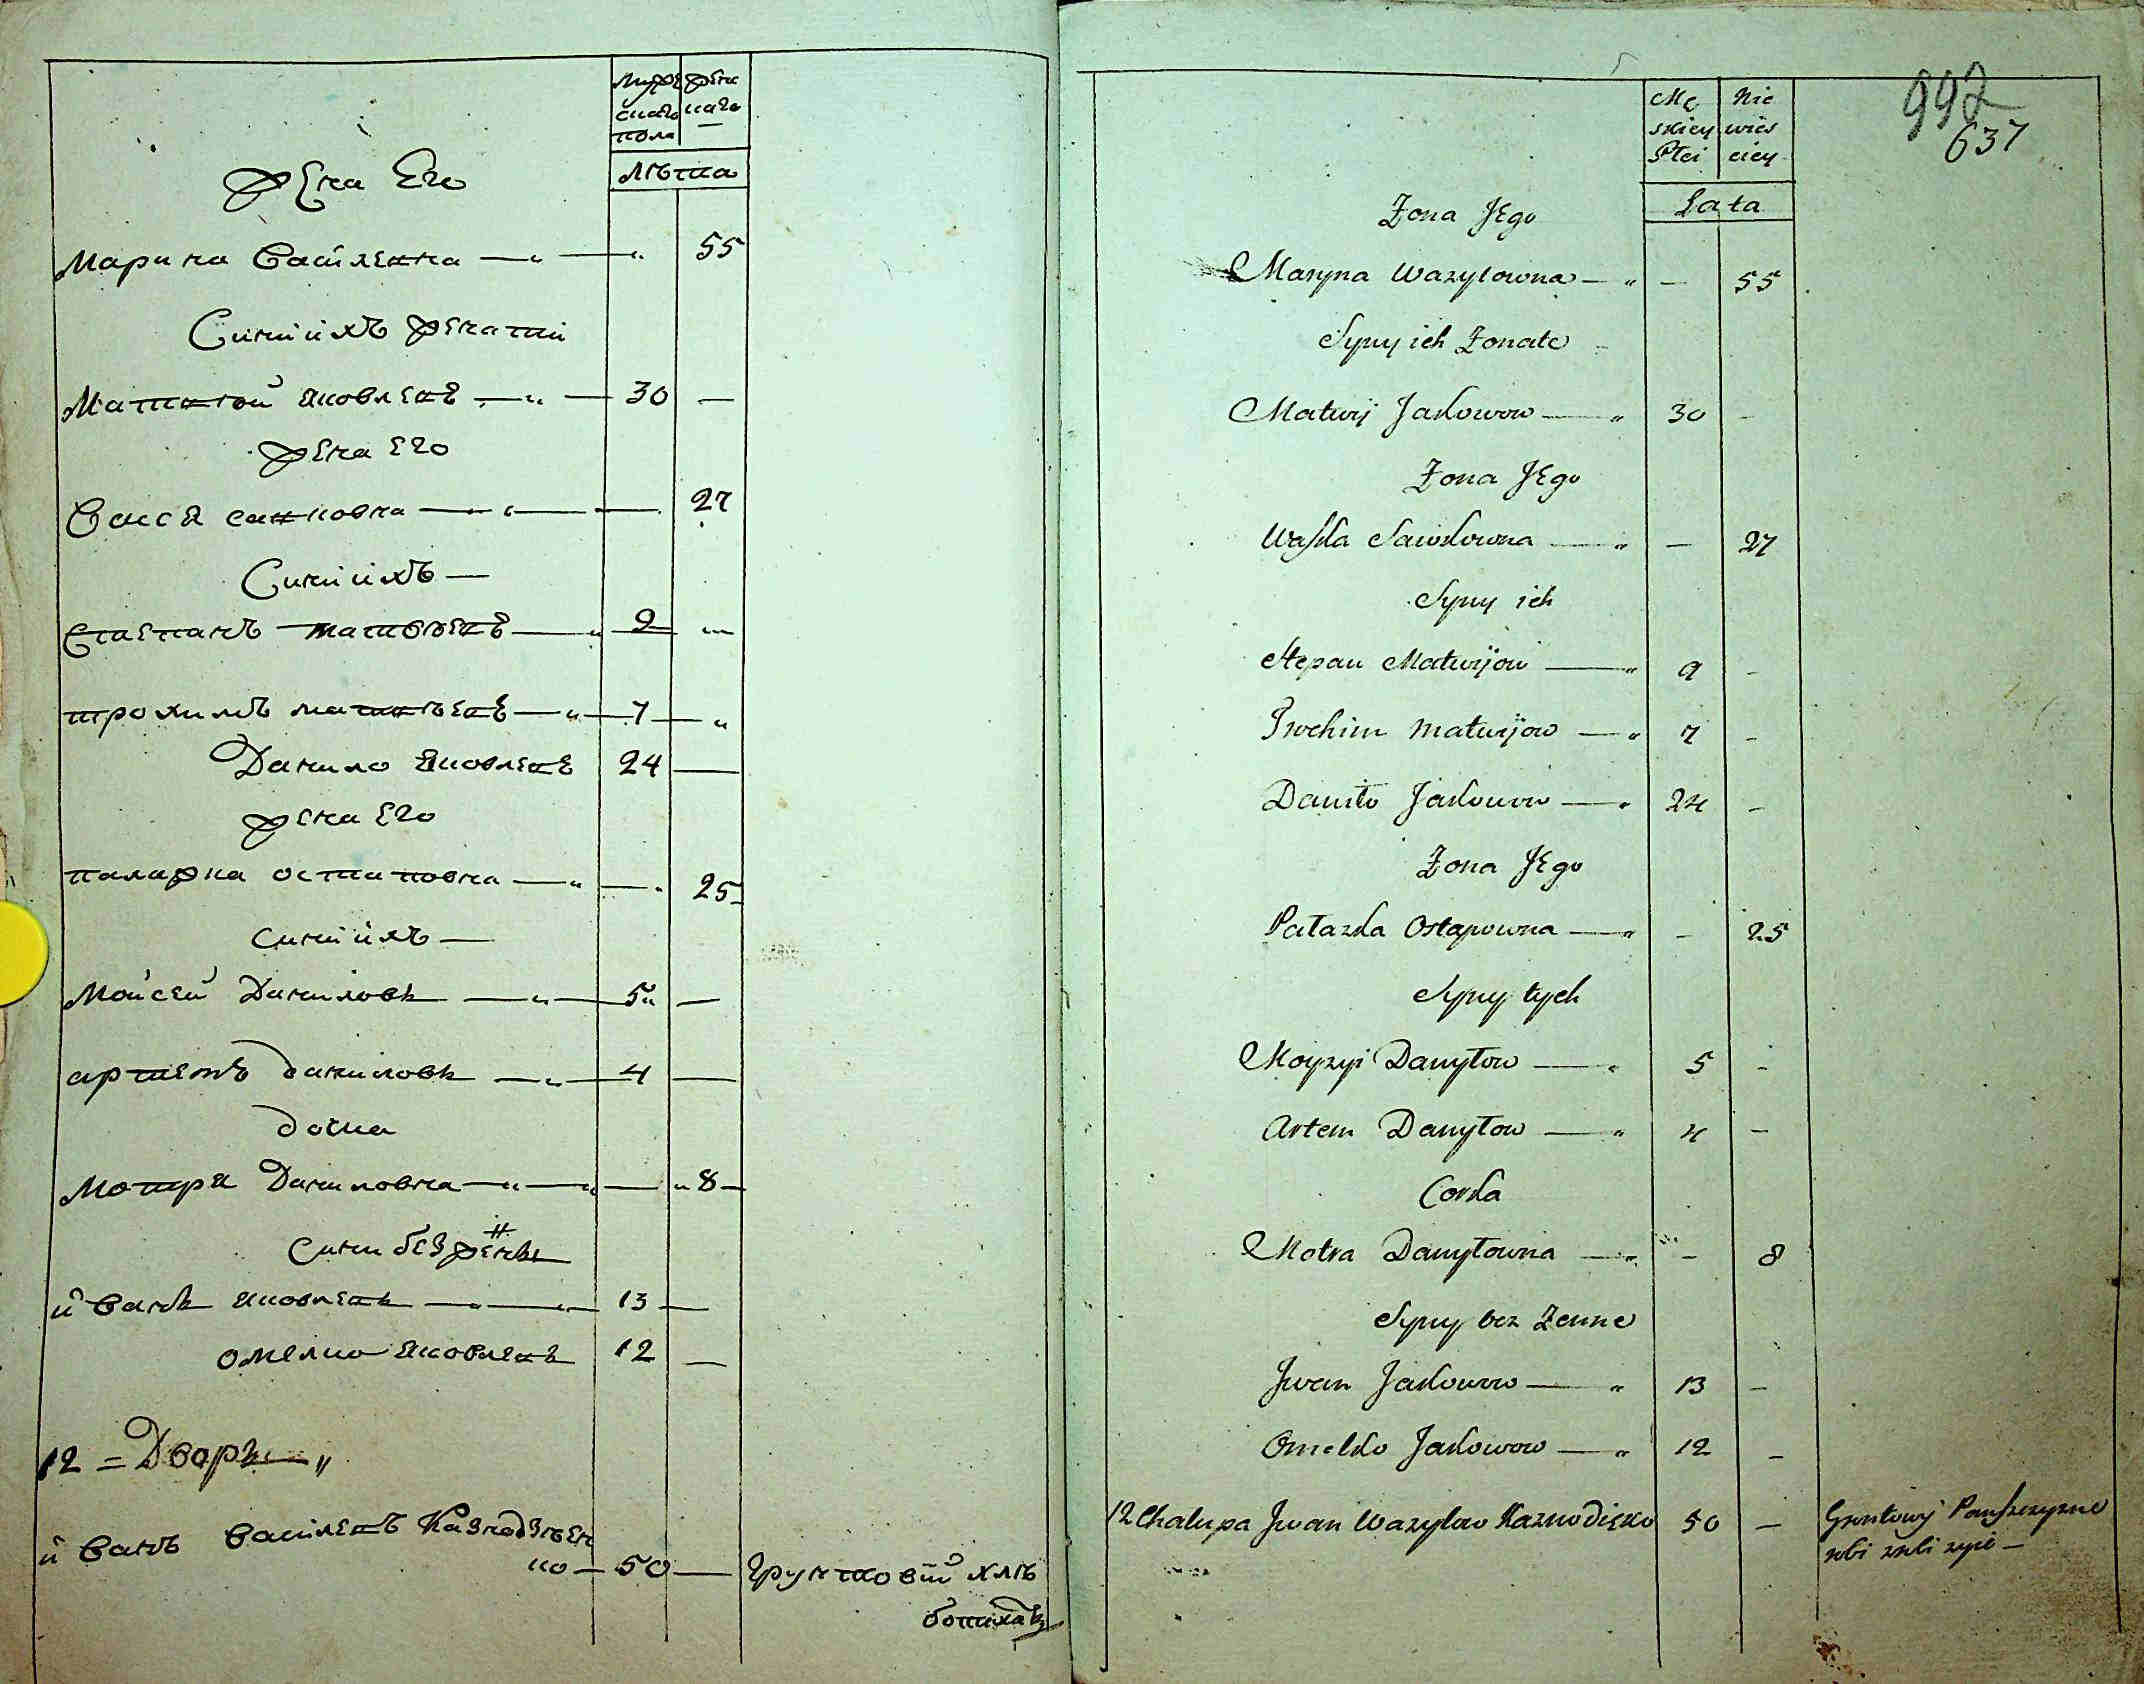 мужескаго пола
женскаго
лѣта
жена Его
марина Василевна — 55
Сини ихъ женати
Матвѣй Яковлевъ — 30 —
жена Его
Васса савковна — 27
Сини ихъ —
Степанъ матвѣевъ — 9 —
трохимъ матвѣевъ — 7 —
Данило Яковлевъ 24 —
жена Его
палажка остаповна — 25
сини ихъ —
Мойсей Даниловъ — 5 —
артемъ даниловъ — 4 —
дочка
Мотря Даниловна — 8 —
Сини без женны
иванъ Яковлевъ — 13 —
омелко Яковлевъ 12 —
12 = Дворъ — „
иванъ василевъ Казнодѣен
ко — 50 — грунтовій хлѣ
бопашецъ
992
637
Mę
skiey
Płci
Nie
wies
ciey
Lata
Żona JEgo
Maryna Wazylowna — „ — 55
Syny ich Żonate
Matwij Jakowow — „ 30 -
Żona JEgo
Waska Sawkowna — „ — 27
Syny ich
Stepan Matwijow — „ 9 -
Trochim Matwijow — „ 7 -
Daniło Jakowow — „ 24 -
Żona JEgo
Pałazka Ostapowna — „ - 25
Syny tych
Moyzyi Danyłow — „ 5 -
Artem Danyłow — „ 4 -
Corka
Motra Danyłowna — „ - 8
Syny bez Żenne
Jwan Jakowow — „ 13 -
Omelko Jakowow — „ 12 -
12 Chałupa Jwan Wazylow Kaznodiejko 50 — Gruntowy Panszczyzne
robi